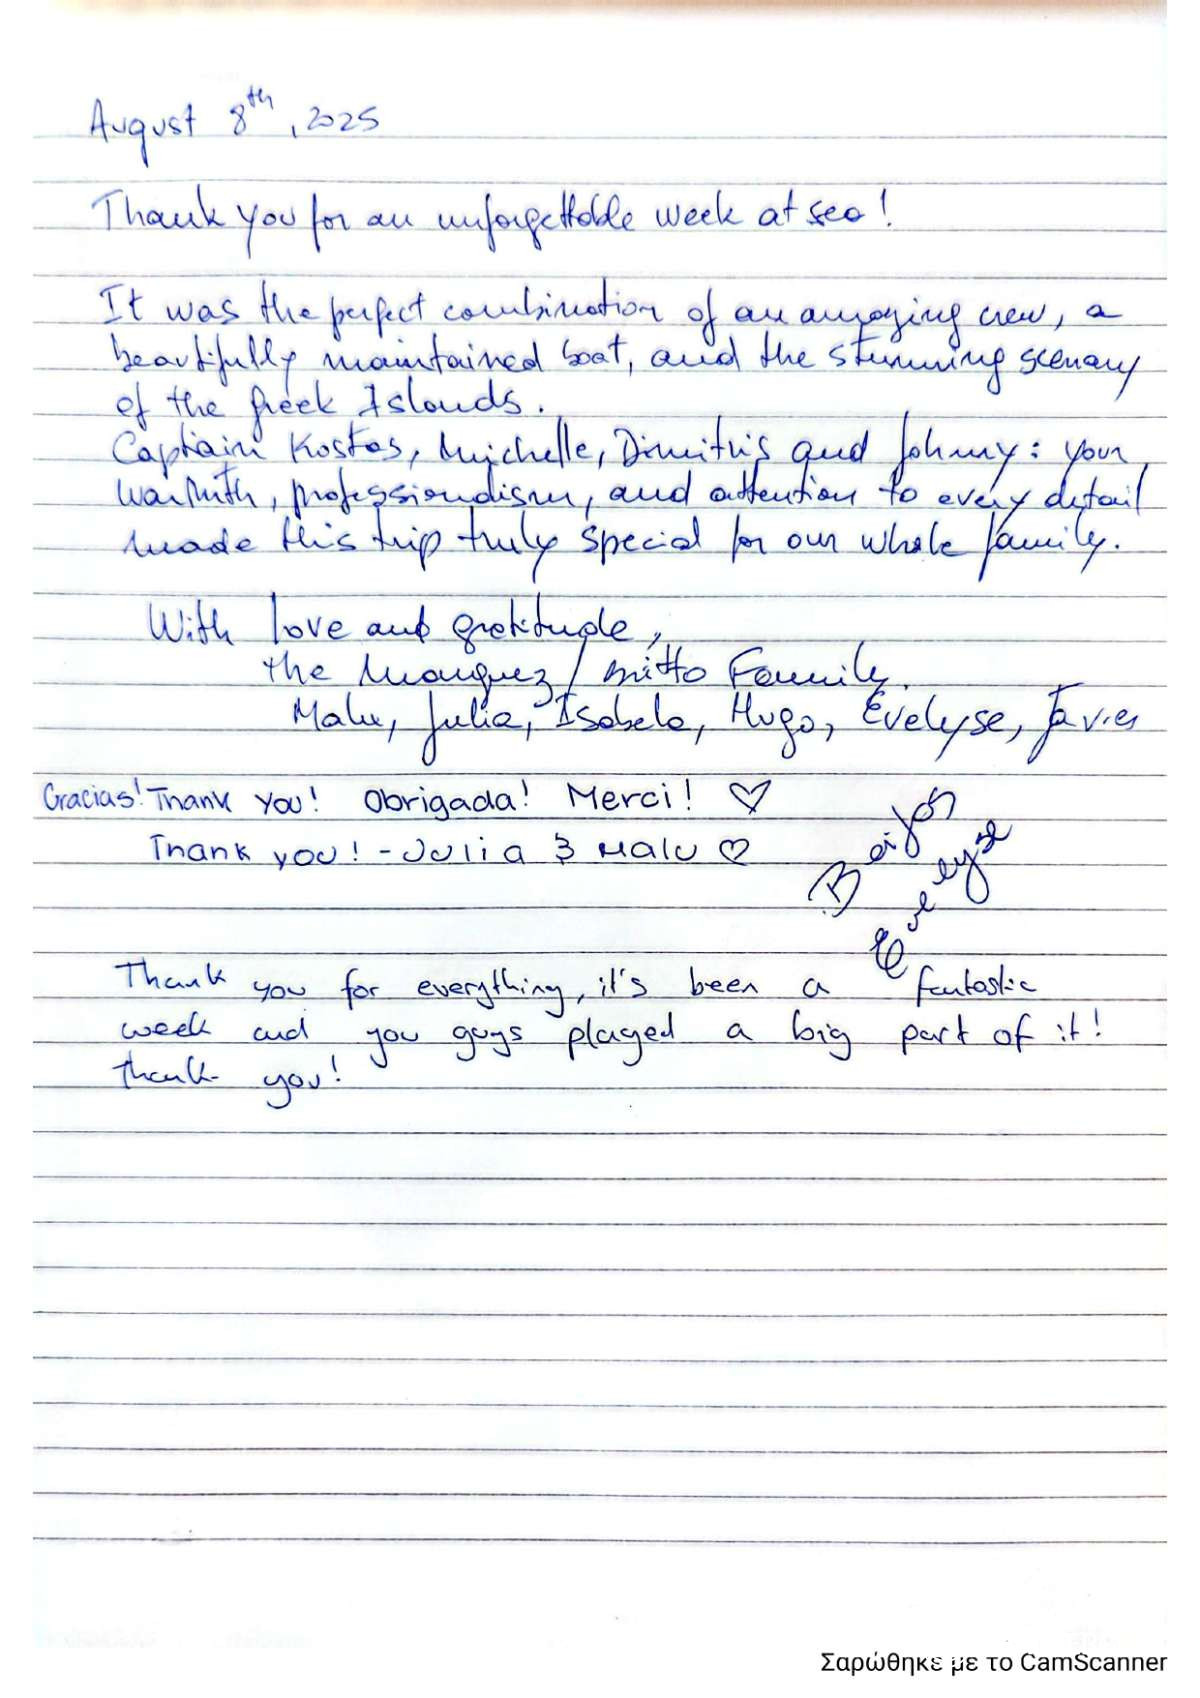 August 8th, 2025
Thank you for an unforgettable week at sea!
It was the perfect combination of an amazing crew, a
beautifully maintained boat, and the stunning scenary
of the Greek Islands.
Captain Kostas, Michelle, Dimitris and Johnny: your
warmth, professionalism, and attention to every detail
made this trip truly special for our whole family.
With love and gratitude,
the Marquez / Mitto Family.
Malu, Julia, Isabela, Hugo, Evelyse, Javier
Gracias! Thank you! Obrigada! Merci! ♡
Thank you! - Julia & Malu ♡
Beijos
Evelyse
Thank you for everything, it's been a fantastic
week and you guys played a big part of it!
Thank you!
Σαρώθηκε με το CamScanner